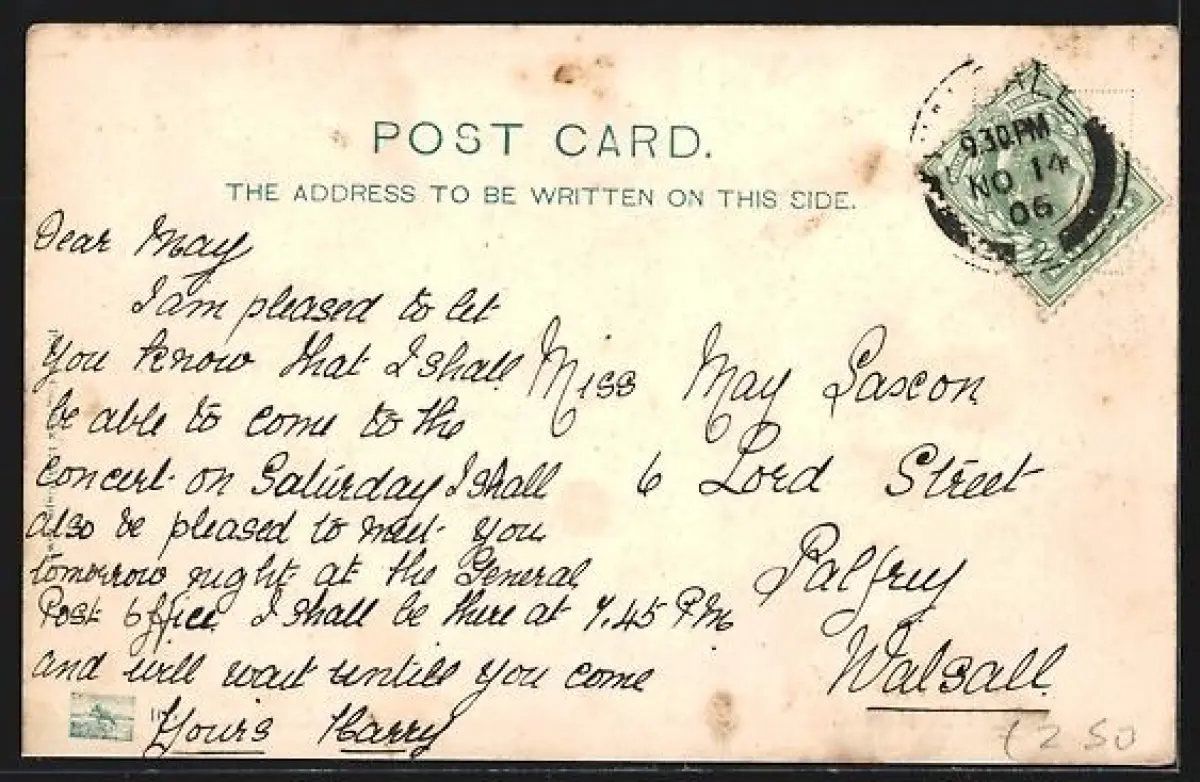 POST CARD.
THE ADDRESS TO BE WRITTEN ON THIS SIDE.
9.30 PM
NO 14
06
2
Dear May
I am pleased to let
you know that I shall
be able to come to the
concert on Saturday I shall
also be pleased to meet you
tomorrow night at the General
Post Office I shall be there at 7.45 PM
and will wait untill you come
Yours Harry
Miss May Gascon
6 Lord Street
Palfrey
Walsall
250